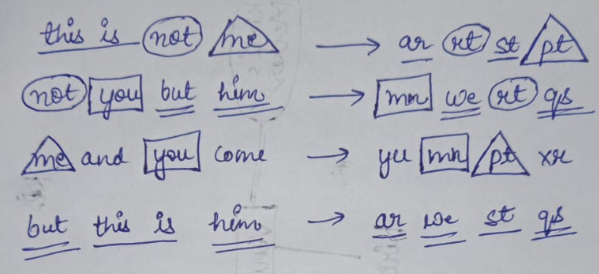 this is not me → ar rt st pt
not you but him → mn we rt qs
me and you come → yu mn pt xr
but this is him → ar we st qs